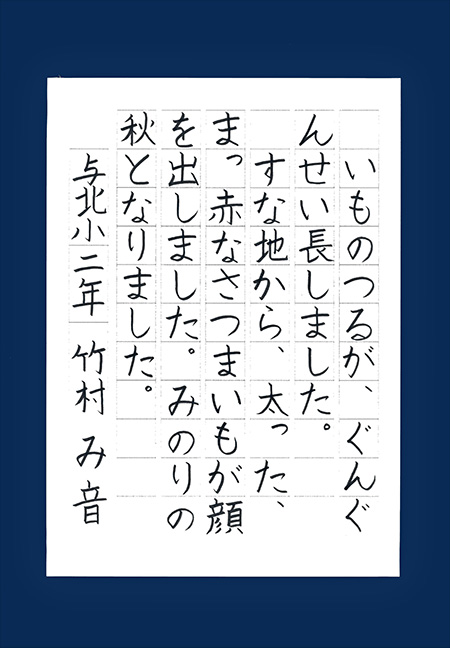 いものつるが、ぐんぐ
んせい長しました。
すな地から、太った、
まっ赤なさつまいもが顔
を出しました。みのりの
秋となりました。
与北小二年 竹村み音